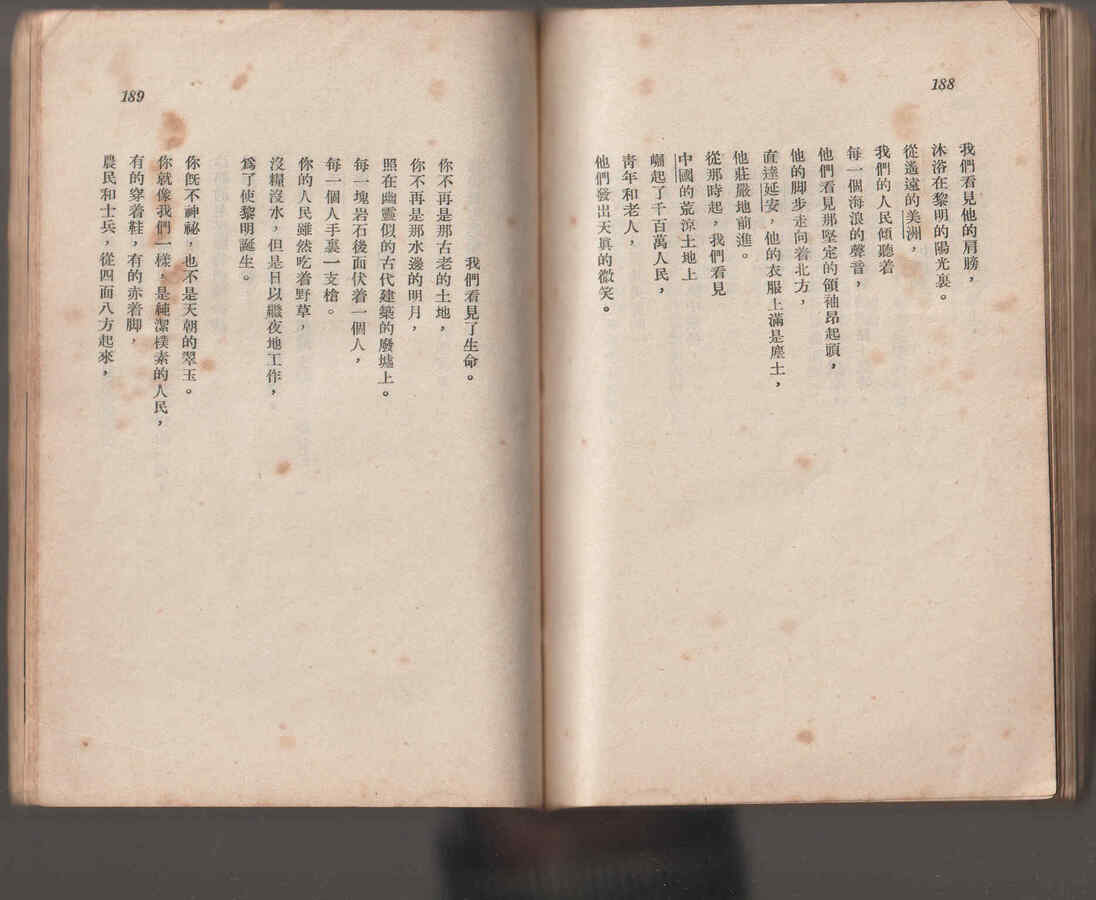 188
我們看見他的肩膀，
沐浴在黎明的陽光裏。
從遙遠的美洲，
我們的人民傾聽着
每一個海浪的聲音，
他們看見那堅定的領袖昂起頭，
他的脚步走向着北方，
直達延安，他的衣服上滿是塵土，
他莊嚴地前進。
從那時起，我們看見
中國的荒凉土地上
崛起了千百萬人民，
靑年和老人，
他們發出天眞的微笑。
189
我們看見了生命。
你不再是那古老的土地，
你不再是那水邊的明月，
照在幽靈似的古代建築的廢墟上。
每一塊岩石後面伏着一個人，
每一個人手裏一支槍。
你的人民雖然吃着野草，
沒糧沒水，但是日以繼夜地工作，
爲了使黎明誕生。
你旣不神祕，也不是天朝的翠玉。
你就像我們一樣，是純潔樸素的人民，
有的穿着鞋，有的赤着脚，
農民和士兵，從四面八方起來，